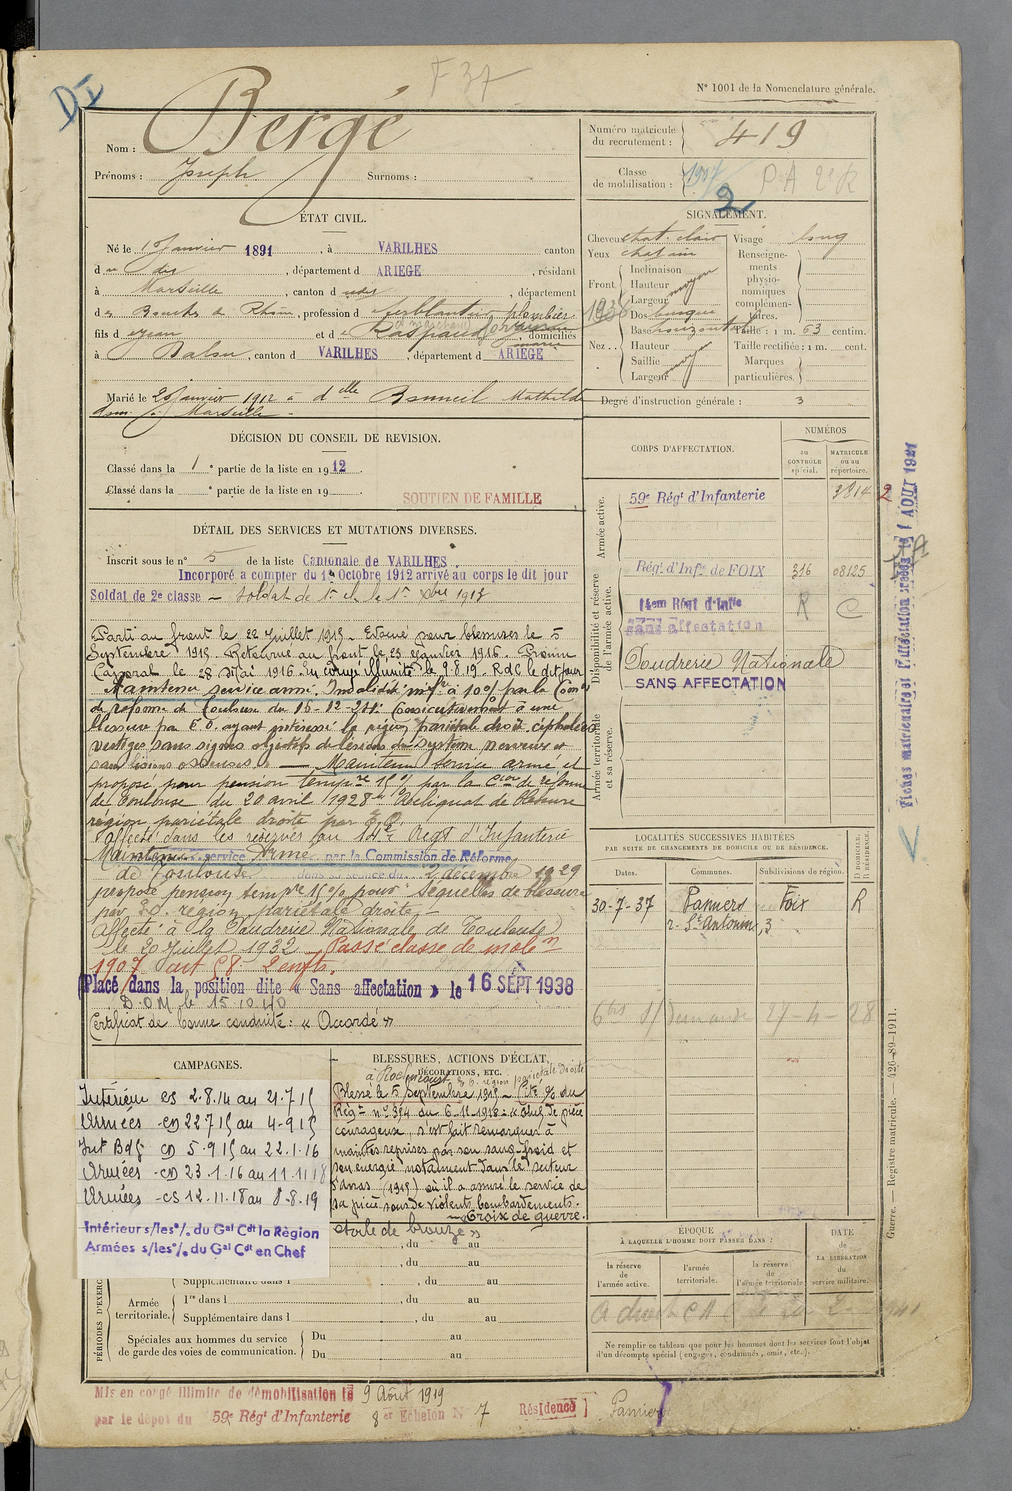 DI
F 37
N° 1001 de la Nomenclature générale.
Nom : Bergé
Prénoms : Joseph Surnoms :
Numéro matricule du recrutement : 419
Classe de mobilisation : 1907 P A 2e R
2
ÉTAT CIVIL.
Né le janvier 1891, à VARILHES canton
du dit, département d ARIEGE, résidant
à Marseille, canton d udit, département
des Bouches du Rhône, profession de ferblantier plombier
fils d Jean et d Raspaud, domiciliés
à Dalou, canton d VARILHES, département d ARIEGE
Marié le janvier 1912 à dlle Bonneil Mathilde
dom. à Marseille.
SIGNALEMENT.
Cheveux chat. clair Visage long
Yeux
Front Inclinaison Hauteur Largeur moyen
1936
Nez Dos busqué
Base horizontale
Hauteur Saillie Largeur moyen
Renseignements physionomiques complémentaires.
Taille : 1 m. 63 centim.
Taille rectifiée : 1 m. cent.
Marques particulières.
Degré d'instruction générale : 3
DÉCISION DU CONSEIL DE REVISION.
Classé dans la 1e partie de la liste en 1912.
Classé dans la e partie de la liste en 19
SOUTIEN DE FAMILLE
CORPS D'AFFECTATION.
NUMÉROS
au CONTRÔLE spécial.
MATRICULE ou au répertoire.
Armée active.
59e Régt d'Infanterie 3814 2
Disponibilité et réserve de l'armée active.
Régt d'Infie de FOIX 316 08125
14em Régt d'Infie R C
sans affectation
Poudrerie Nationale
SANS AFFECTATION
Armée territoriale et sa réserve.
Fiches matriculaires et d'affectation créées le 1 AOUT 1921
DÉTAIL DES SERVICES ET MUTATIONS DIVERSES.
Inscrit sous le n° 5 de la liste Cantonale de VARILHES.
Incorporé a compter du 1° Octobre 1912 arrivé au corps le dit jour
Soldat de 2e classe — Soldat de 1e cl. le 1er Xbre 1913
Parti au front le 22 Juillet 1915. Evacué pour blessures le 5
Septembre 1915. Retourné au front le 23 Janvier 1916. Promu
Caporal le 28 Mai 1916. En congé illimité le 9.8.19. RdC le dit jour
Maintenu service armé. Invalidité inf re à 10% par la Con
de réforme de Toulouse du 15-12-21: Consécutivement à une
blessure par E.O. ayant intéressé la région pariétale droit. céphalées
vertiges sans signes objectifs de lésions du système nerveux et
sans lésions osseuses. — Maintenu service armé et
proposé pour pension tempre 15% par la Cion de réforme
de Toulouse du 20 avril 1928 "Reliquat de blessure
région pariétale droite par E.O.
Affecté dans les réserves au 14e Régt d'Infanterie
Maintenu service Armé par la Commission de Réforme
de Toulouse dans sa séance du 2 décembre 1929
proposé pension tempre 15% pour : Séquelles de blessure
par E.O. région pariétale droite.—
Affecté à la Poudrerie Nationale de Toulouse
le 20 Juillet 1932. Passé classe de mobon
1907 art 58. 2 enfts.
Placé dans la position dite « Sans affectation » le 16 SEPT 1938
D.O.M. le 15.10.40
Certificat de bonne conduite : « Accordé »
LOCALITÉS SUCCESSIVES HABITÉES
PAR SUITE DE CHANGEMENTS DE DOMICILE OU DE RÉSIDENCE.
Dates. Communes. Subdivisions de région. D DOMICILE. R RÉSIDENCE.
30-7-37 Pamiers Foix R
r. St Antonin, 3
6 bis 27-4-28
CAMPAGNES.
Intérieur CS 2.8.14 au 21.7.15
Armées CD 22 7 15 au 4-9 15
Int Bdg CD 5.9 15 au 22.1.16
Armées CD 23.1.16 au 11.11 18
Armées CS 12.11.18 au 8-8.19
Intérieur s/les °/. du Gal Cdt la Région
Armées s/les °/. du Gal Cdt en Chef
BLESSURES, ACTIONS D'ÉCLAT, DÉCORATIONS, ETC.
à Roclincourt E.O. région pariétale droite
Blessé le 5 Septembre 1915 - Cité % du
Régt n° 394 du 6-11-1918 - « Chef de pièce
courageux, s'est fait remarquer à
maintes reprises par son sang-froid et
son énergie notamment dans le secteur
d'Arras (1915) où il a assuré le service de
sa pièce sous de violents bombardements.
— Croix de guerre.
étoile de bronze »
, du au
, du au
PÉRIODES D'EXERC
Supplémentaire dans l , du au
Armée territoriale. 1re dans l , du au
Supplémentaire dans l , du au
Spéciales aux hommes du service de garde des voies de communication. Du au
Du au
ÉPOQUE
À LAQUELLE L'HOMME DOIT PASSER DANS :
la réserve de l'armée active.
l'armée territoriale.
la réserve de l'armée territoriale
DATE de LA LIBÉRATION du service militaire.
1941
Ne remplir ce tableau que pour les hommes dont les services font l'objet
d'un décompte spécial (engagés, condamnés, omis, etc.).
Guerre. — Registre matricule. — 426-89-1911.
Mis en congé illimité de démobilisation le 9 Août 1919
par le dépôt du 59e Régt d'Infanterie 8er Echelon N° 7 Résidence Pamiers